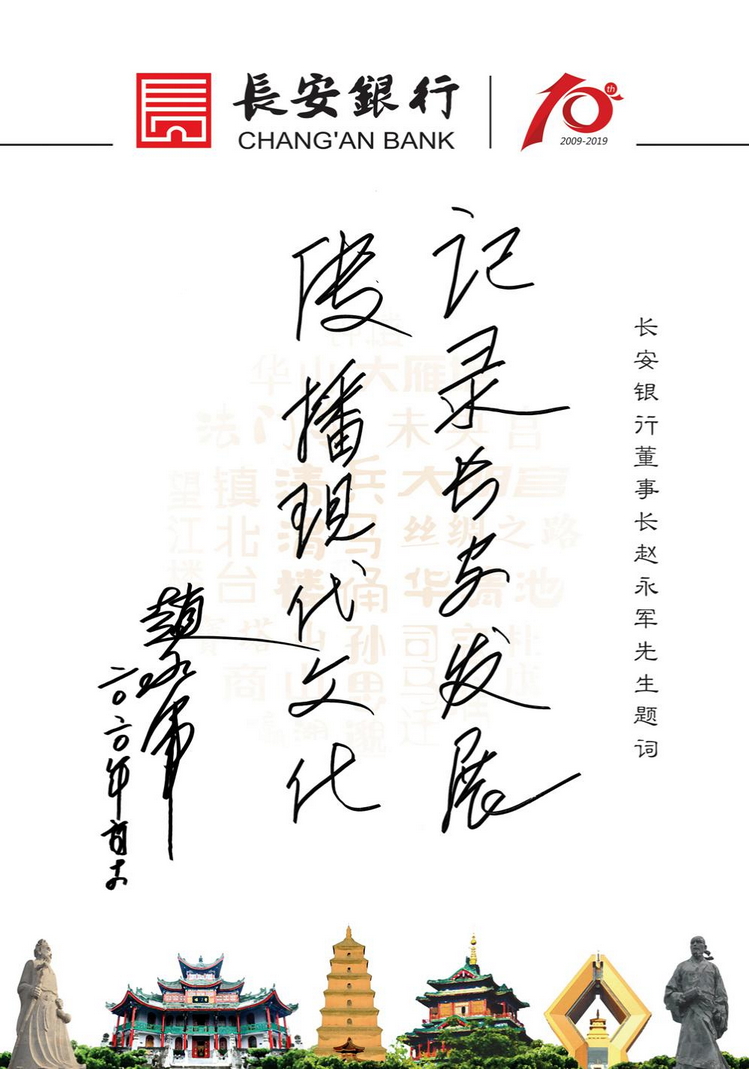 長安銀行
CHANG'AN BANK
10th
2009-2019
长安银行董事长赵永军先生题词
记录长安发展
传播现代文化
趙永軍
二〇二〇年
华山
大雁
法门
未央宫
镇北台
兵马俑
大明宫
丝绸之路
华清池
孙思邈
司马迁